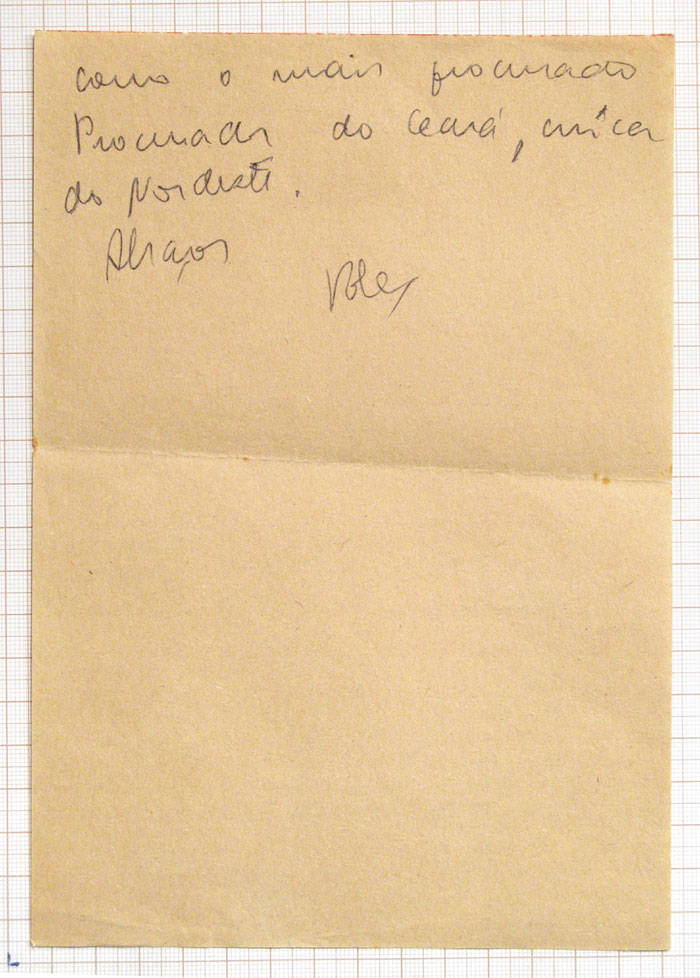 como o mais procurado
Procurador do Ceará,
do Nordeste.
Abraços